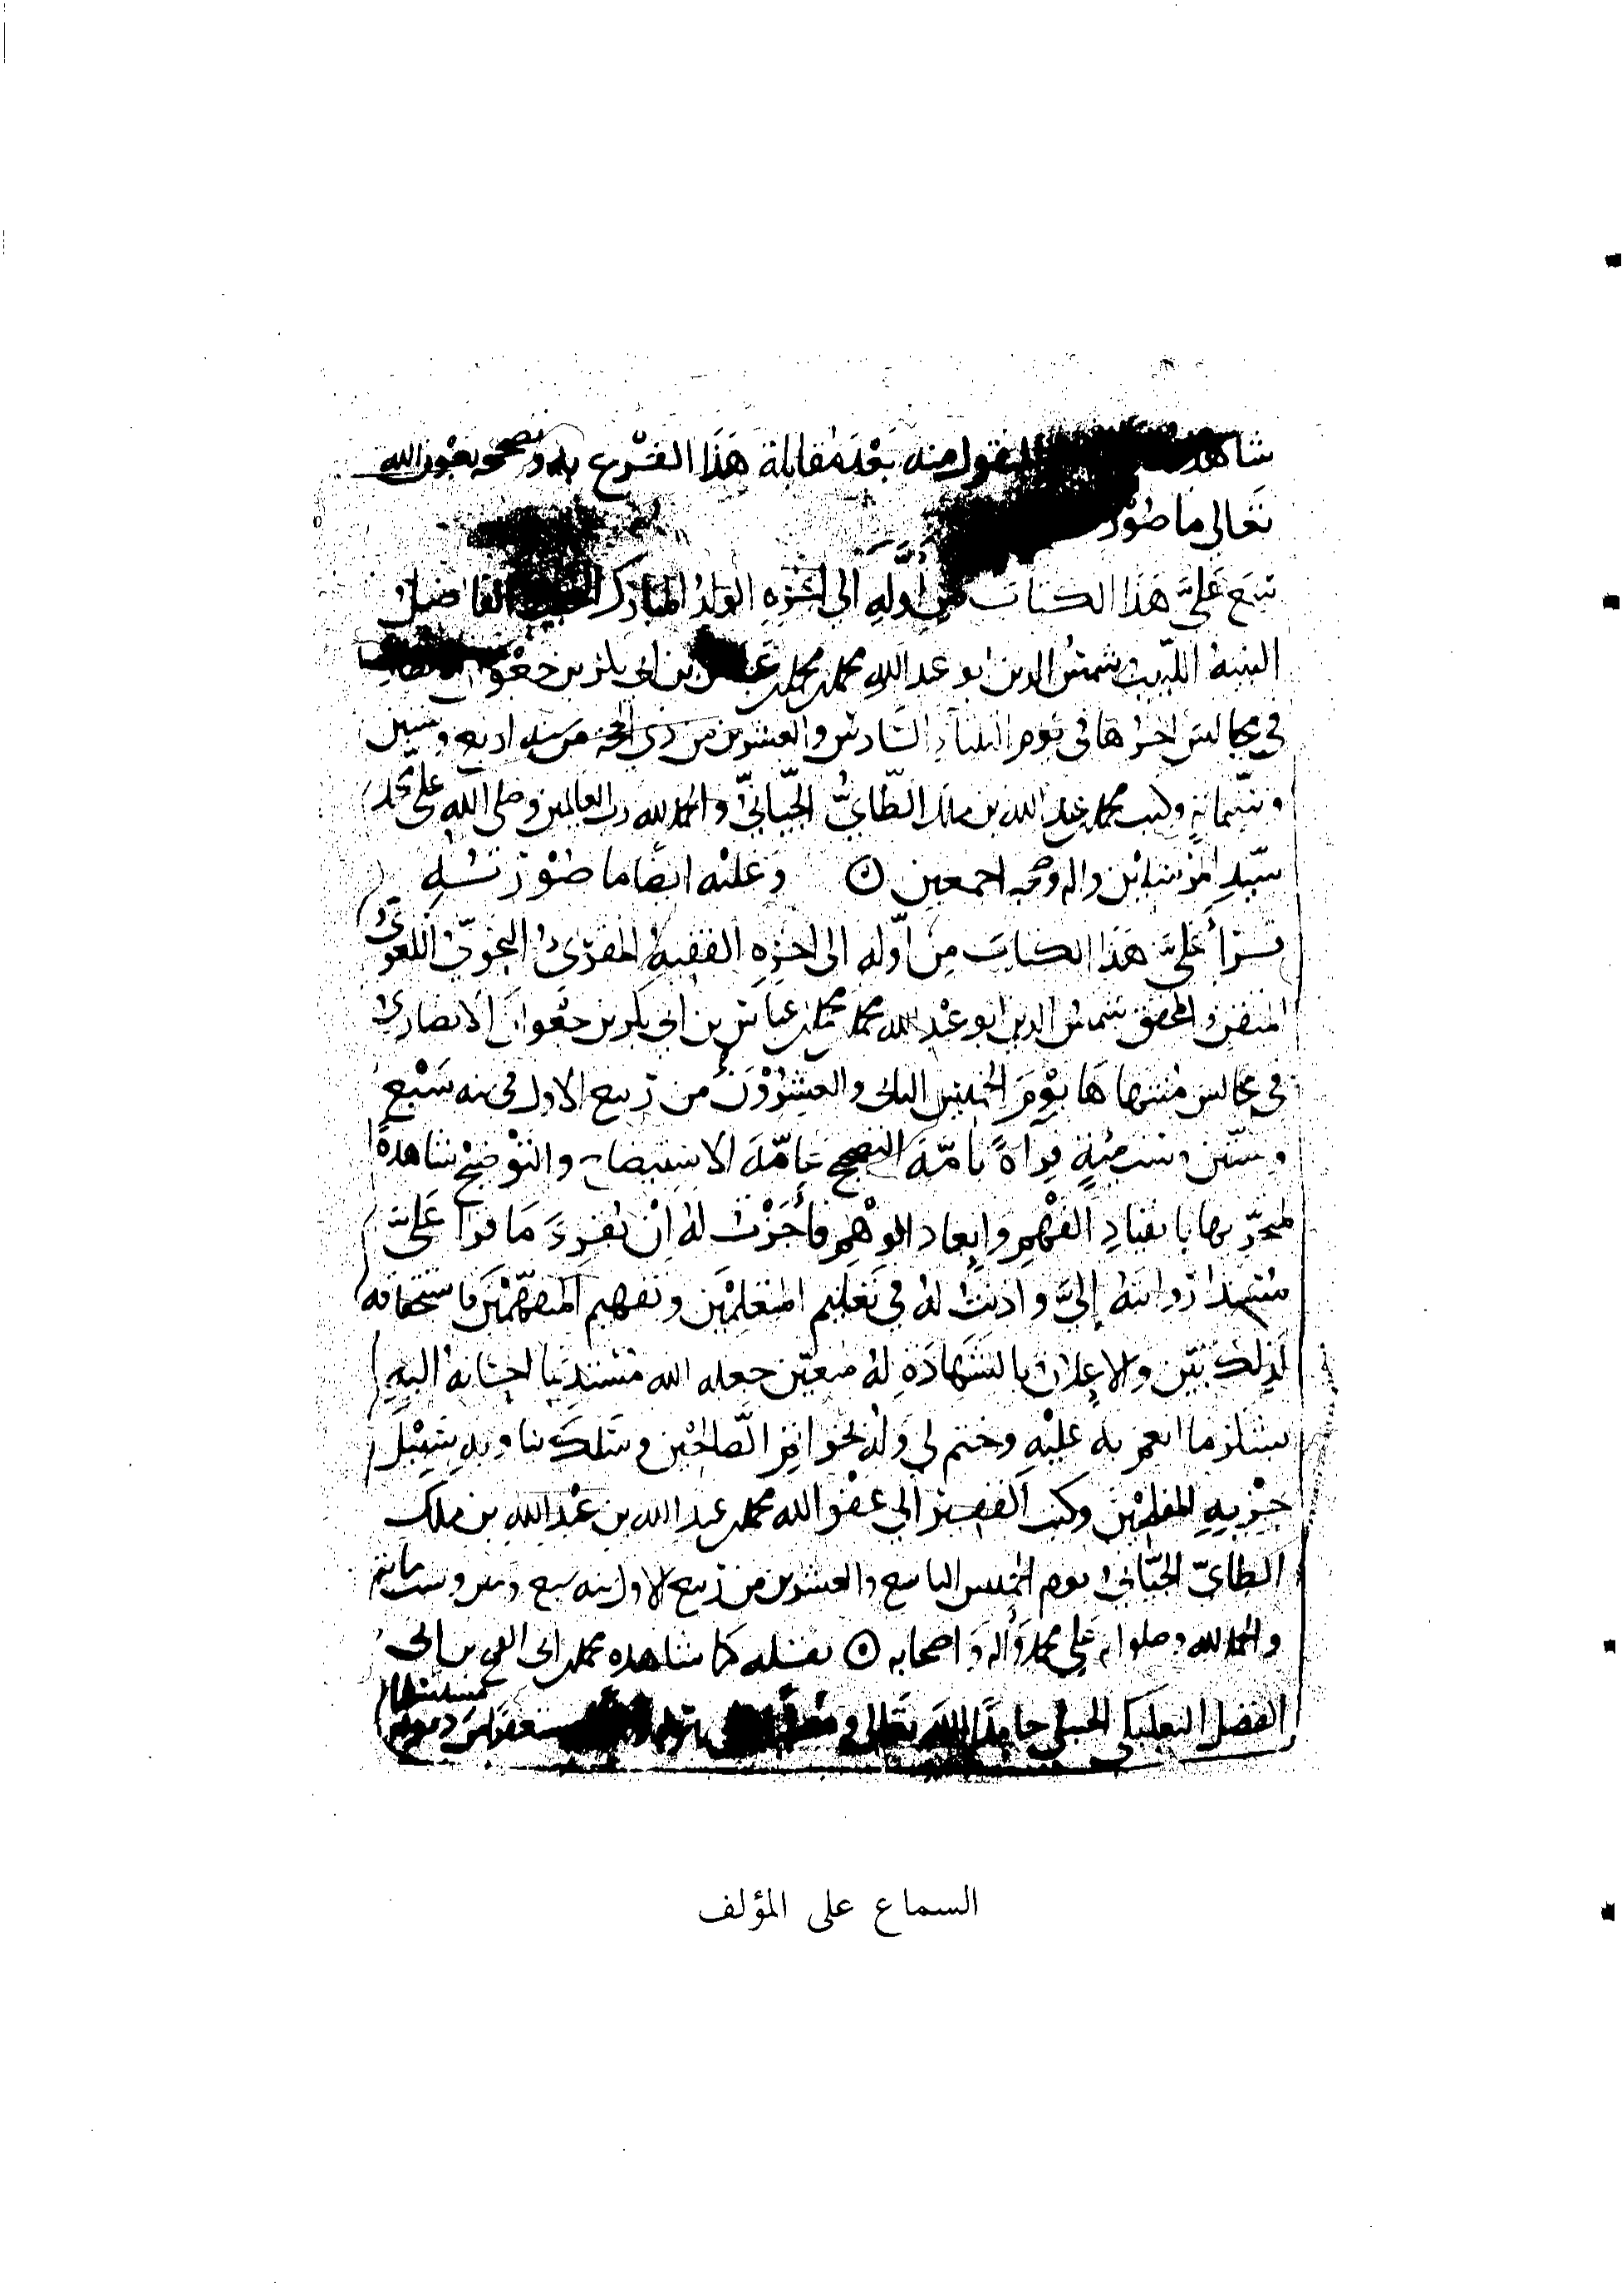 شاهد المنقول منه بعد مقابلة هذا الفرع به وتصحيحه بعون الله
تعالى ما صورته
سمع عليّ هذا الكتاب من أوّله إلى آخره الولد المبارك النجيب الفاضل
النبيه اللبيب شمس الدين ابو عبد الله محمد بن محمد بن عباس بن ابي بكر بن جعوان الأنصاري
في مجالس اخرها في يوم الثلثاء السادس والعشرين من ذي الحجة من سنه اربع وستين
وستمائة وكتب محمد بن عبد الله بن مالك الطّائيّ الجيّانيّ والحمد لله رب العالمين وصلى الله على محمد
سيّد المرسلين واله وصحبه اجمعين وعليه ايضًا ما صورته
قرأ عليّ هذا الكتاب من اوّله الى اخره الفقيه المقرئ النحويّ اللغويّ
المتقن المحقق شمس الدين ابو عبد الله محمد بن محمد بن عباس بن ابي بكر بن جعوان الانصاريّ
في مجالس منتهاها يوم الخميس والعشرون من ربيع الاول في سنه سبع
وستّين وستمئة قراءةً تامّة التصحيح عامّة الاستيضاح والتوضيح شاهدة
بانقياد الفهم وابعاد الوهم فأجزت له ان يقرئ ما قرأ عليّ
مسندا روايته إليّ واذنت له في تعليم المتعلمين وتفهيم المتفهّمين فاستحقاقه
لذلك بيّن والاعلان بالشهادة له متعيّن جعله الله مستديما لحسانه اليه
بشكر ما انعم به عليه وختم لي وله بخواتم الصّالحين وسلك بنا وبه سبيل
حزبه المفلحين وكتب الفقير الى عفو الله محمد بن عبد الله بن عبد الله بن ملك
الطائيّ الجيّانيّ يوم الخميس التاسع والعشرين من ربيع الاول سنه سبع وستين وستمائة
والحمد لله وصلواته على محمد وآله واصحابه نقله كما شاهده محمد بن ابي الفتح بن ابي
الفضل البعلبكي الحنبلي حامدًا لله تعالى و
السماع على المؤلف